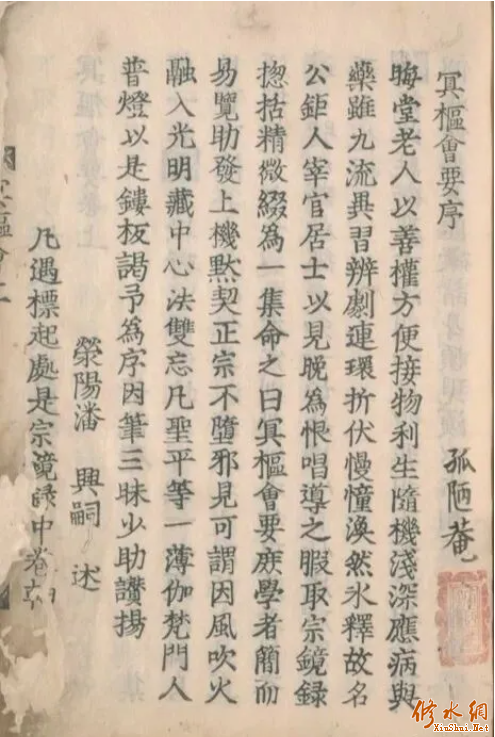 冥樞會要序
孤陋菴
晦堂老人以善權方便接物利生隨機淺深應病與
藥雖九流異習辨劇連環折伏慢憧渙然冰釋故名
公鉅人宰官居士以見晚為恨唱導之暇取宗鏡錄
揔括精微綴為一集命之曰冥樞會要庻學者簡而
易覽助發上機默契正宗不墮邪見可謂因風吹火
融入光明藏中心法雙忘凡聖平等一薄伽梵門人
普燈以是鏤板謁予為序因筆三昧少助讚揚
滎陽潘興嗣述
凡遇標起處是宗鏡錄中卷
冥樞會
修水網
XiuShui.Net